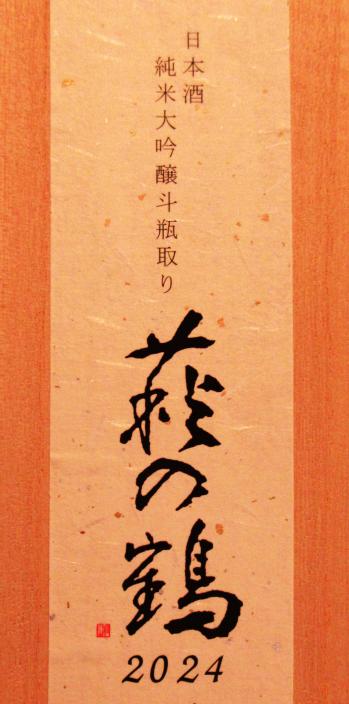 日本酒
純米大吟醸斗瓶取り
萩の鶴
2024